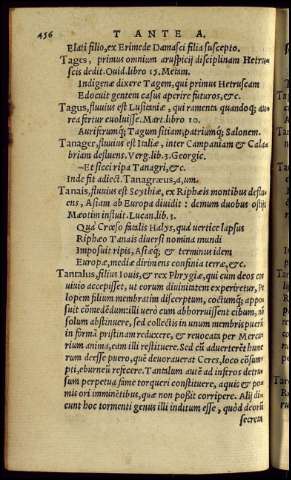 456 TANTE A.
Elati filio, ex Erimede Damasci filia suscepto.
Tages, primus omnium aruspicij disciplinam Hetru
scis dedit. Ouid. libro 15. Metam.
Indigenæ dixere Tagem, qui primus Hetruscam
Edocuit gentem casus aperire futuros, &c.
Tagus, fluuius est Lusitaniæ, qui ramenta quandoq; au
rea fertur euoluisse. Mart. libro 10.
Auriferumq; Tagum sitiam, patriumq; Salonem.
Tanager, fluuius est Italiæ, inter Campaniam & Cala
briam defluens. Verg. lib. 3. Georgic.
—Et sicci ripa Tanagri, &c.
Inde fit adiect. Tanagræus, a, um.
Tanais, fluuius est Scythiæ, ex Riphæis montibus deflu
ens, Asiam ab Europa diuidit: demum duobus ostijs
Mæotim influit. Lucan. lib. 3.
Qua Crœso fatalis Halys, qua vertice lapsus
Riphæo Tanais diuersi nomina mundi
Imposuit ripis, Asiæq; & terminus idem
Europæ, mediæ dirimens confinia terræ, &c.
Tantalus, filius Iouis, & rex Phrygiæ, qui cum deos con
uiuio accepisset, ut eorum diuinitatem experiretur, Pe
lopem filium membratim discerptum, coctumq; appo
suit comedēdum: illi verò cum abhorruissent cibum, nō
solum abstinuere, sed collectis in unum membris puerū
in formā pristinam reduxere, & reuocata per Mercu
rium anima, eum illi restituere. Sed cū aduerterēt hume
rum deesse puero, què deuorauerat Ceres, loco cōsum
pti, eburneū refecere. Tantalum autē ad inferos detru
sum perpetua fame torqueri constituere, aquis & po
mis ori imminētibus, quæ non possit corripere. Alij di
cunt hoc tormenti genus illi inditum esse, quòd deorū
secreta